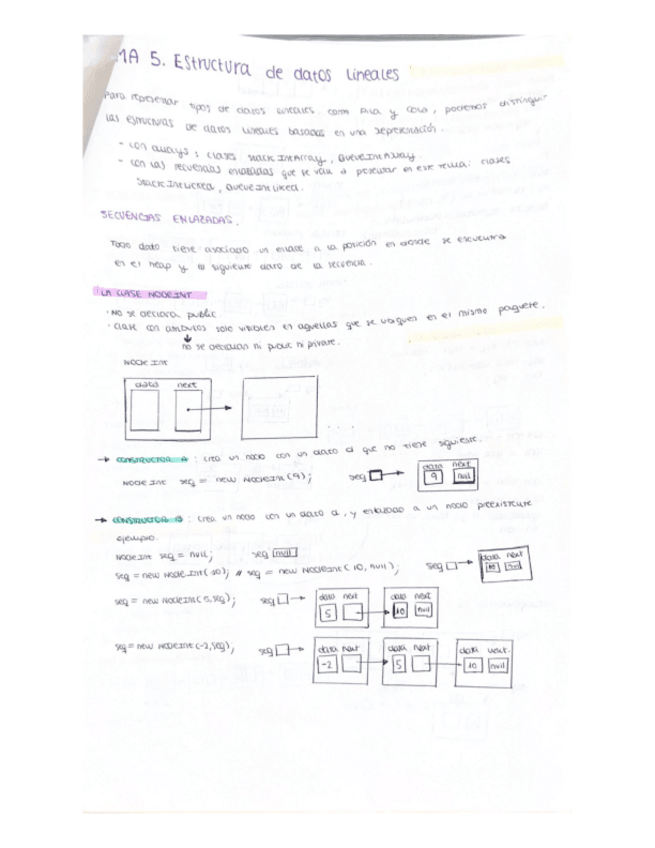 MA 5. Estructura de datos lineales
Para representar tipos de datos lineales como Pila y Cola, podemos distinguir
las estructuras de datos lineales basadas en una representación.
- con arrays: clases StackIntArray, QueueIntArray.
- con las secuencias enlazadas que se van a presentar en este tema: clases
StackIntLinked, QueueIntLinked.
SECUENCIAS ENLAZADAS.
Todo dato tiene asociado un enlace a la posición en donde se encuentra
en el heap y el siguiente dato de la secuencia.
LA CLASE NODEINT
· No se declara public.
· Clase con atributos solo visibles en aquellas que se ubiquen en el mismo paquete.
no se declaran ni public ni private.
NODE INT
data next
→ CONSTRUCTOR A : crea un nodo con un dato d que no tiene siguiente.
NODE INT seq = new NODEINT(9); seq → data next
9 null
→ CONSTRUCTOR B : crea un nodo con un dato d, y enlazado a un nodo preexistente
ejemplo.
NODEINT seq = null; seq null
seq = new NODE INT(10); // seq = new NODEINT(10, null); seq → data next
10 null
seq = new NODEINT(5,seq); seq → data next data next
5 10 null
seq = new NODEINT(-2,seq); seq → data next data next data next
-2 5 10 null